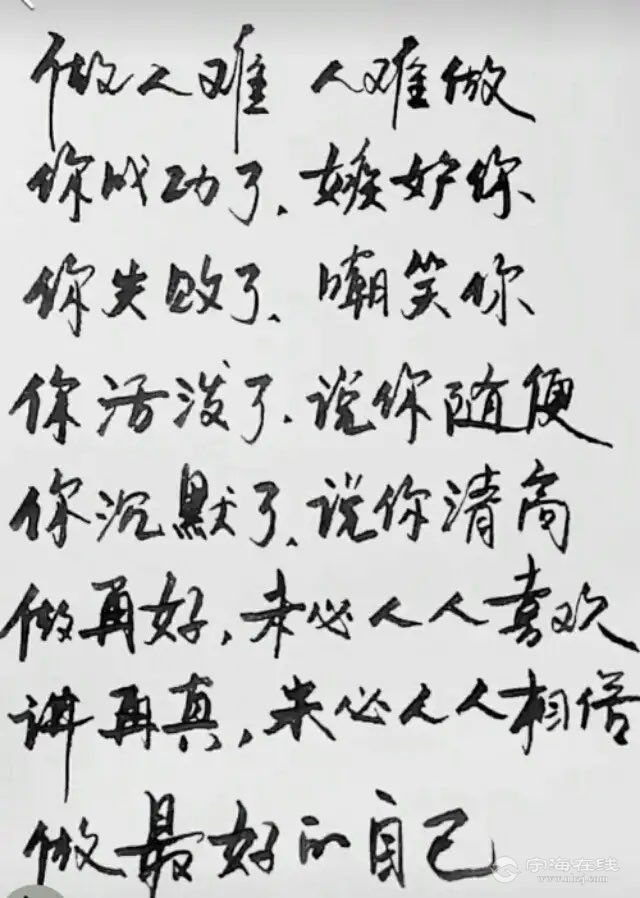 做人难 人难做
你成功了、嫉妒你
你失败了、嘲笑你
你活泼了、说你随便
你沉默了、说你清高
做再好,未必人人喜欢
讲再真,未必人人相信
做最好的自己
宁海在线
www.nhzj.com